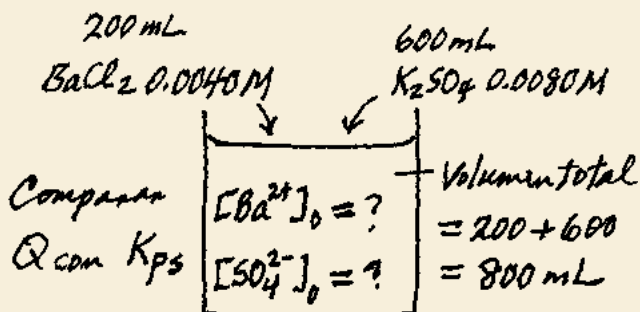 200 mL
BaCl₂ 0.0040M
600 mL
K₂SO₄ 0.0080M
Comparar
Q con Kps
[Ba²⁺]₀ = ?
[SO₄²⁻]₀ = ?
Volumen total
= 200 + 600
= 800 mL